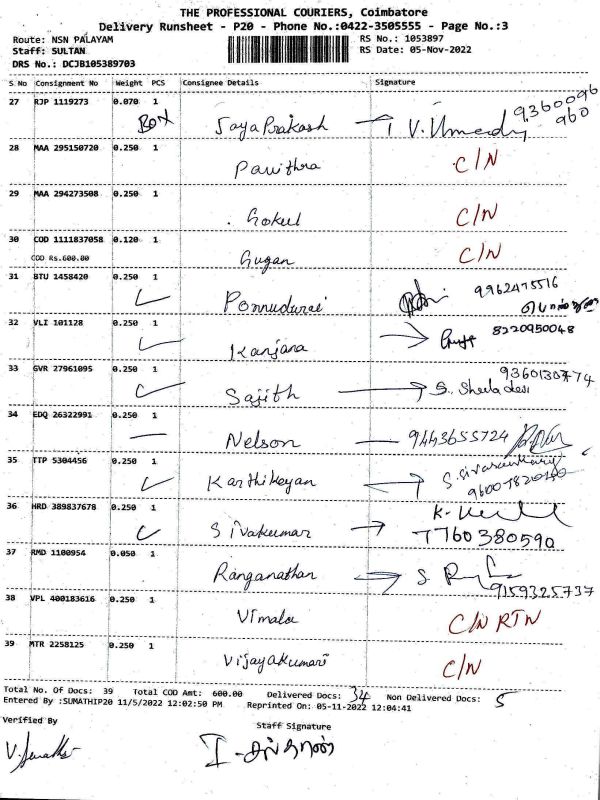 THE PROFESSIONAL COURIERS, Coimbatore
Delivery Runsheet - P20 - Phone No.:0422-3505555 - Page No.:3
Route: NSN PALAYAM RS No.: 1053897
Staff: SULTAN RS Date: 05-Nov-2022
DRS No.: DCJB105389703
S No Consignment No Weight PCS Consignee Details Signature
27 RJP 1119273 0.070 1 9360096
BOX JayaPrakash 960
28 MAA 295150720 0.250 1
Pavithra C/N
29 MAA 294273508 0.250 1
Gokul C/N
30 COD 1111837058 0.120 1
COD Rs.600.00 Gugan C/N
31 BTU 1458420 0.250 1 9962475516
Ponnudurai
32 VLI 101128 0.250 1 8220950048
Kanjana
33 GVR 27961095 0.250 1 9360130774
Sajith S. Sheela devi
34 EDQ 26322991 0.250 1
Nelson 9443655724
35 TTP 5304456 0.250 1
Karthikeyan
36 HRD 389837678 0.250 1
Sivakumar 7760380590
37 RMD 1100954 0.050 1
Ranganathan 9159325737
38 VPL 400183616 0.250 1
Vimala C/N RTN
39 MTR 2258125 0.250 1
Vijayakumari C/N
Total No. Of Docs: 39 Total COD Amt: 600.00 Delivered Docs: 34 Non Delivered Docs: 5
Entered By :SUMATHIP20 11/5/2022 12:02:50 PM Reprinted On: 05-11-2022 12:04:41
Verified By Staff Signature